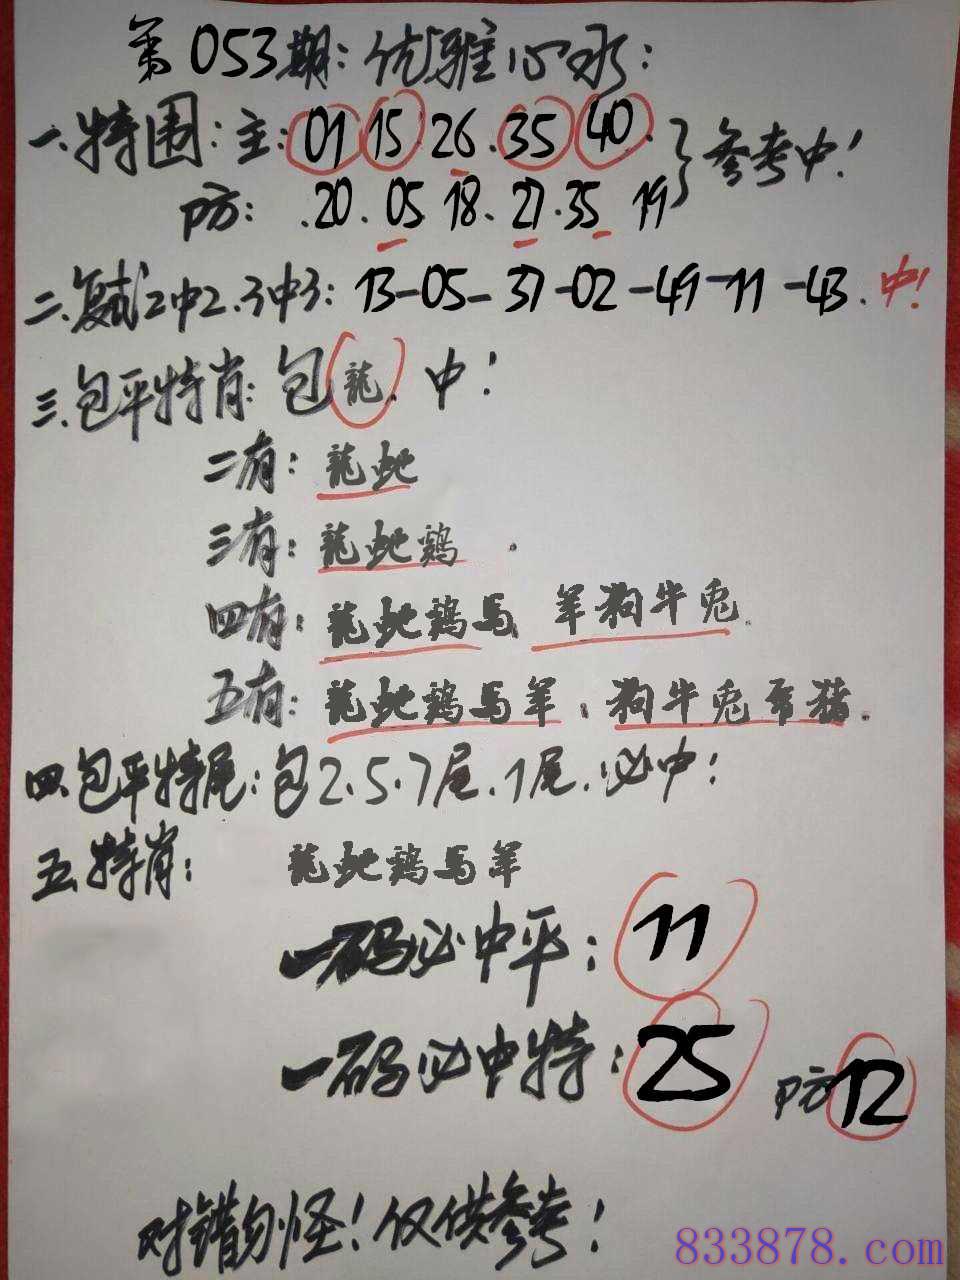 第053期：优雅心水：
一.特围：主：01 15 26.35 40. 参考中！
防：.20.05 18.27.35 19
二.复试2中2.3中3：13-05-37-02-49-11-43.中！
三.包平特肖：包龍.中！
二有：龍虵
三有：龍虵鶏.
四有：龍虵鶏马、羊狗牛兎.
五有：龍虵鶏马羊、狗牛兎 猪.
四.包平特尾：包2.5.7尾.1尾.必中！
五.特肖：龍虵鶏马羊
一码必中平：11
一码必中特：25 防12
对错勿怪！仅供参考！
833878.com